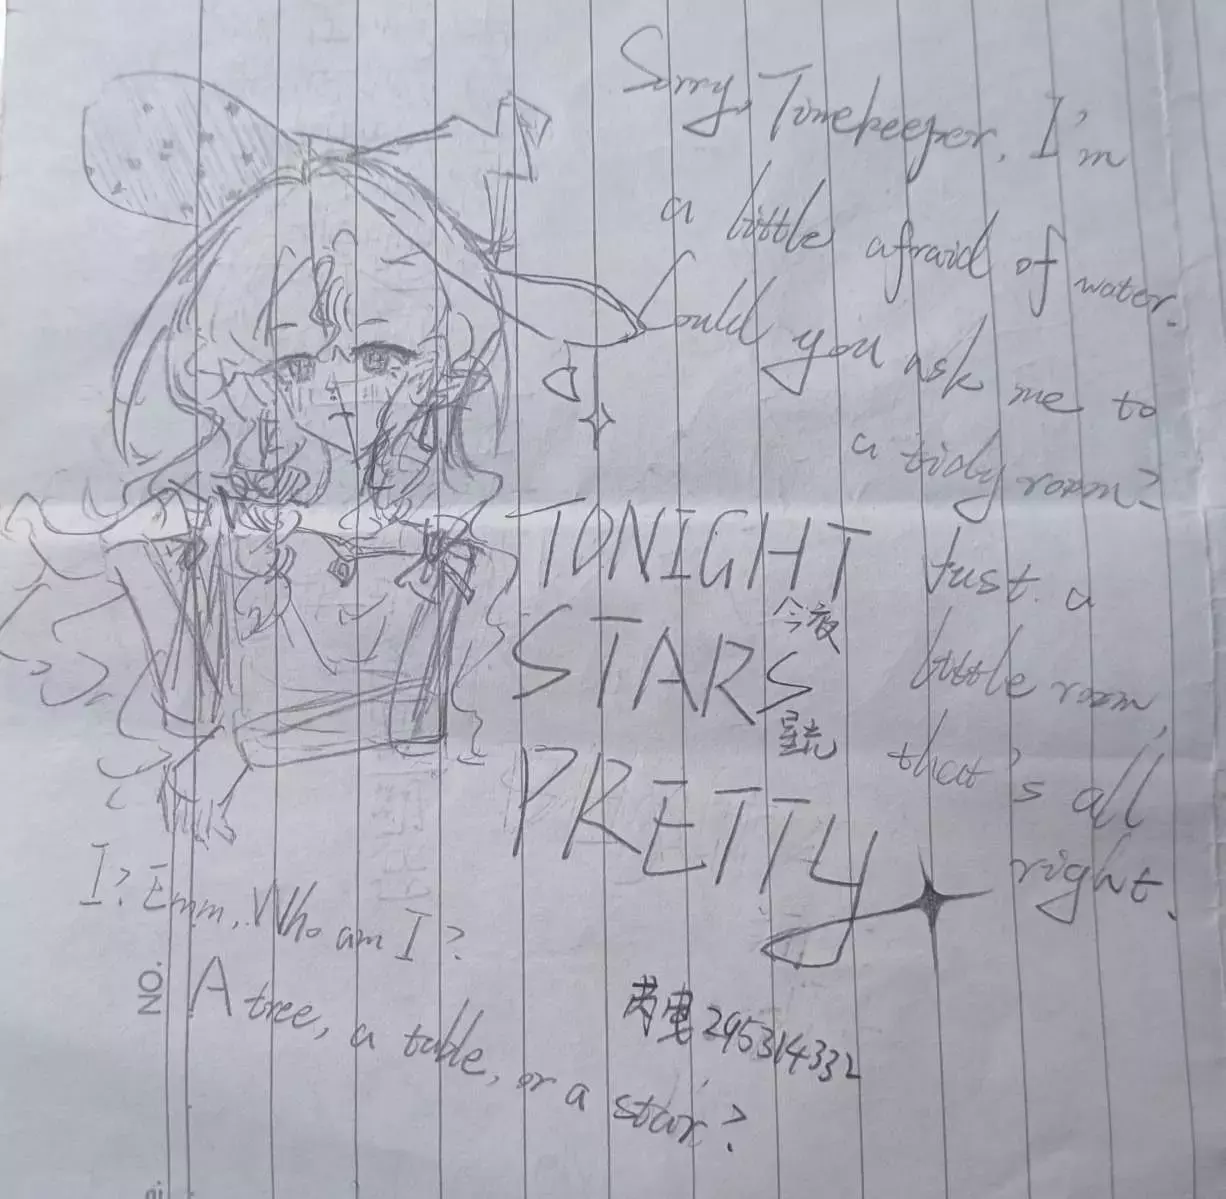 Sorry, Timekeeper, I'm
a little afraid of water.
Could you ask me to
a tidy room?
Just a
little room,
that's all
right.
TONIGHT
今夜
STARS
星光
PRETTY
I? Emm, Who am I?
A tree, a table, or a star?
295314332
NO.